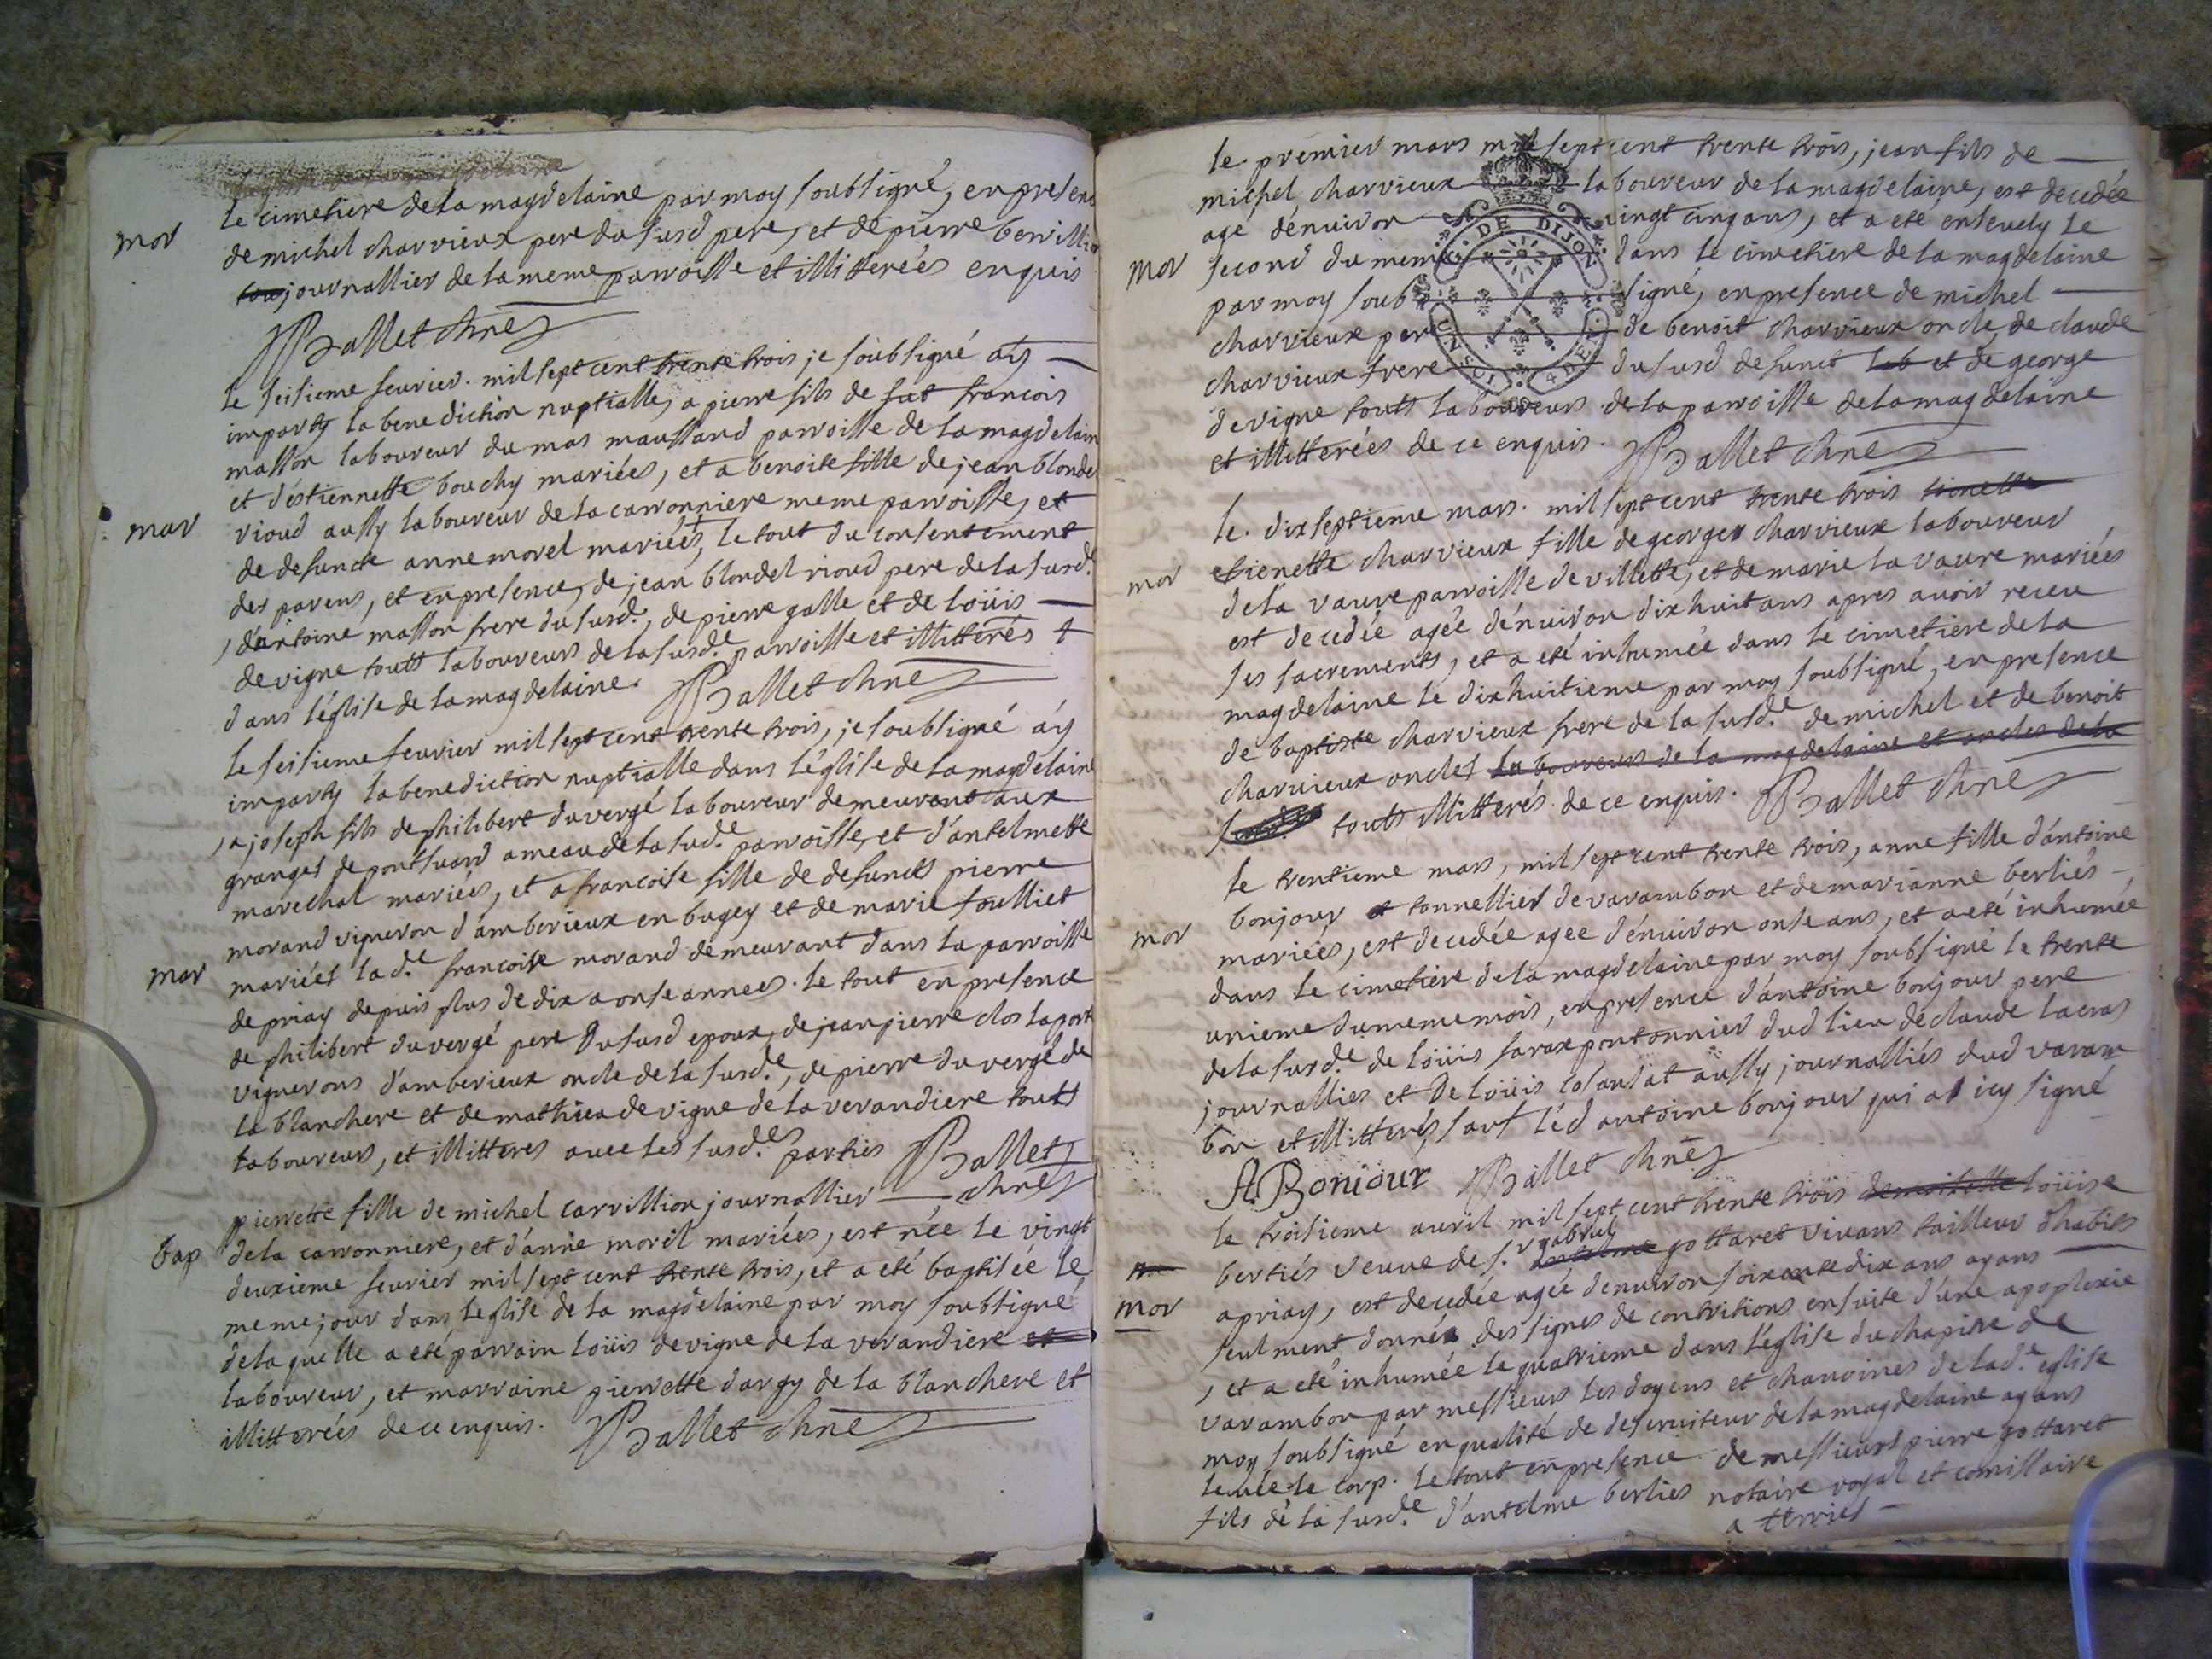 le cimetiere de la magdelaine par moy soubsigné, en presen
mor
de michel charvieux pere du susd pere, et de pierre bervillio
journallier de la meme parroisse et illitterées enquis
Ballet chne
le seisieme feurier. mil sept cent trente trois je soubsigné ay
imparty la benediction nuptialle, a pierre fils de fut francois
masson laboureur du mas maussand parroisse de la magdelain
et d'éstiennette bouchy mariées, et a benoite fille de jean blonde
mar
rioud aussy laboureur de la carronniere meme parroisse, et
de defuncte anne morel mariées, le tout du consentement
des parens, et en presence, de jean blondel rioud pere de la susd.e
, d'antoine masson frere du susd., de pierre galle et de loüis
devigne toutt laboureurs de la susd.e parroisse et illitterés +
dans l'église de la magdelaine. Ballet chne
le seisieme feurier mil sept cent trente trois, je soubsigné ay
imparty la benediction nuptialle dans l'église de la magdelaine
, a joseph fils de philibert duvergé laboureur demeurent aux
granges de pontsuard ameau de la sud.e parroisse, et d'antelmette
marechal mariées, et a francoise fille de defuncts pierre
morand vigneron d'amberieux en bugey et de marie foulliet
mar
mariées lad.e francoise morand demeurant dans la parroisse
de priay depuis plus de dix a onse annees. le tout en presence
de philibert duvergé pere du susd epoux, de jean pierre clos laport
vignerons d'amberieux oncle de la susd.e, de pierre duvergé de
la blanchere et de mathieu devigne de la verandiere toutt
laboureurs, et illitteres avec les susd.es parties Ballet
chne
pierrette fille de michel carvillion journallier
bap
de la carronniere, et d'anne morel mariées, est née le vingt
deuxieme feurier mil sept cent trente trois, et a eté baptisée le
meme jour dans l'eglise de la magdelaine par moy soubsigné
de laquelle a eté parrain loüis devigne de la verandiere et
laboureur, et marraine pierrette dargy de la blanchere et
illitterées de ce enquis. Ballet chne
le premier mars mil sept cent trente trois, jean fils de
michel charvieux laboureur de la magdelaine, est decedée
agé dénuiron vingt cinq ans, et a eté enseuely le
mor
second du meme dans le cimetiere de la magdelaine
par moy soub signé, en presence de michel
charvieux pere de benoit charvieux oncle, de claude
charvieux frere du susd defunct lab et de george
devigne toutt laboureurs de la parroisse de la magdelaine
et illitterées de ce enquis. Ballet chne
DE DIJON
le dix septieme mars. mil sept cent trente trois tienette
etienette charvieux fille de george charvieux laboureur
mor
de la vaure parroisse de villette, et de marie la vaure mariées
est decedée agée dénuiron dix huit ans apres auoir receu
ses sacrements, et a eté inhumée dans le cimetiere de la
magdelaine le dix huitieme par moy soubsigné, en presence
de baptiste charvieux frere de la susd.e de michel et de benoit
charvieux oncles laboureurs de la magdelaine et oncles de la
toutt illitterés de ce enquis. Ballet chne
le trentieme mars, mil sept cent trente trois, anne fille d'antoine
bonjour tonnellier de varambon et de marianne berliés
mor
mariées, est decedée agee dénuiron onse ans, et a eté inhumée
dans le cimetiere de la magdelaine par moy soubsigné le trente
unieme du meme mois, en presence d'antoine bonjour pere
de la susd.e de loüis sarax pontonnier dud lieu de claude lacras
journallier et de loüis aussy journalliés dud varam
bon et illitterés, sauf léd antoine bonjour qui a icy signé
A. Bonjour Ballet chne
le troisieme auril mil sept cent trente trois demoiselle loüise
bertiés veuve de s.r gabriel gottaret vivant tailleur d'habits
mor
a priay, est decedée agée denuiron soixante dix ans ayant
seulment donnée des signes de contritions ensuite d'une apoplexie
, et a eté inhumée le quatrieme dans l'église du chapitre de
varambon par messieurs les doyens et chanoines de lad.e eglise
moy soubsigné en qualité de deseruiteur de la magdelaine ayant
leuée le corp. le tout en presence de messieurs pierre gottaret
fils de la susd.e d'antelme berlies notaire royal et comissaire
a terries